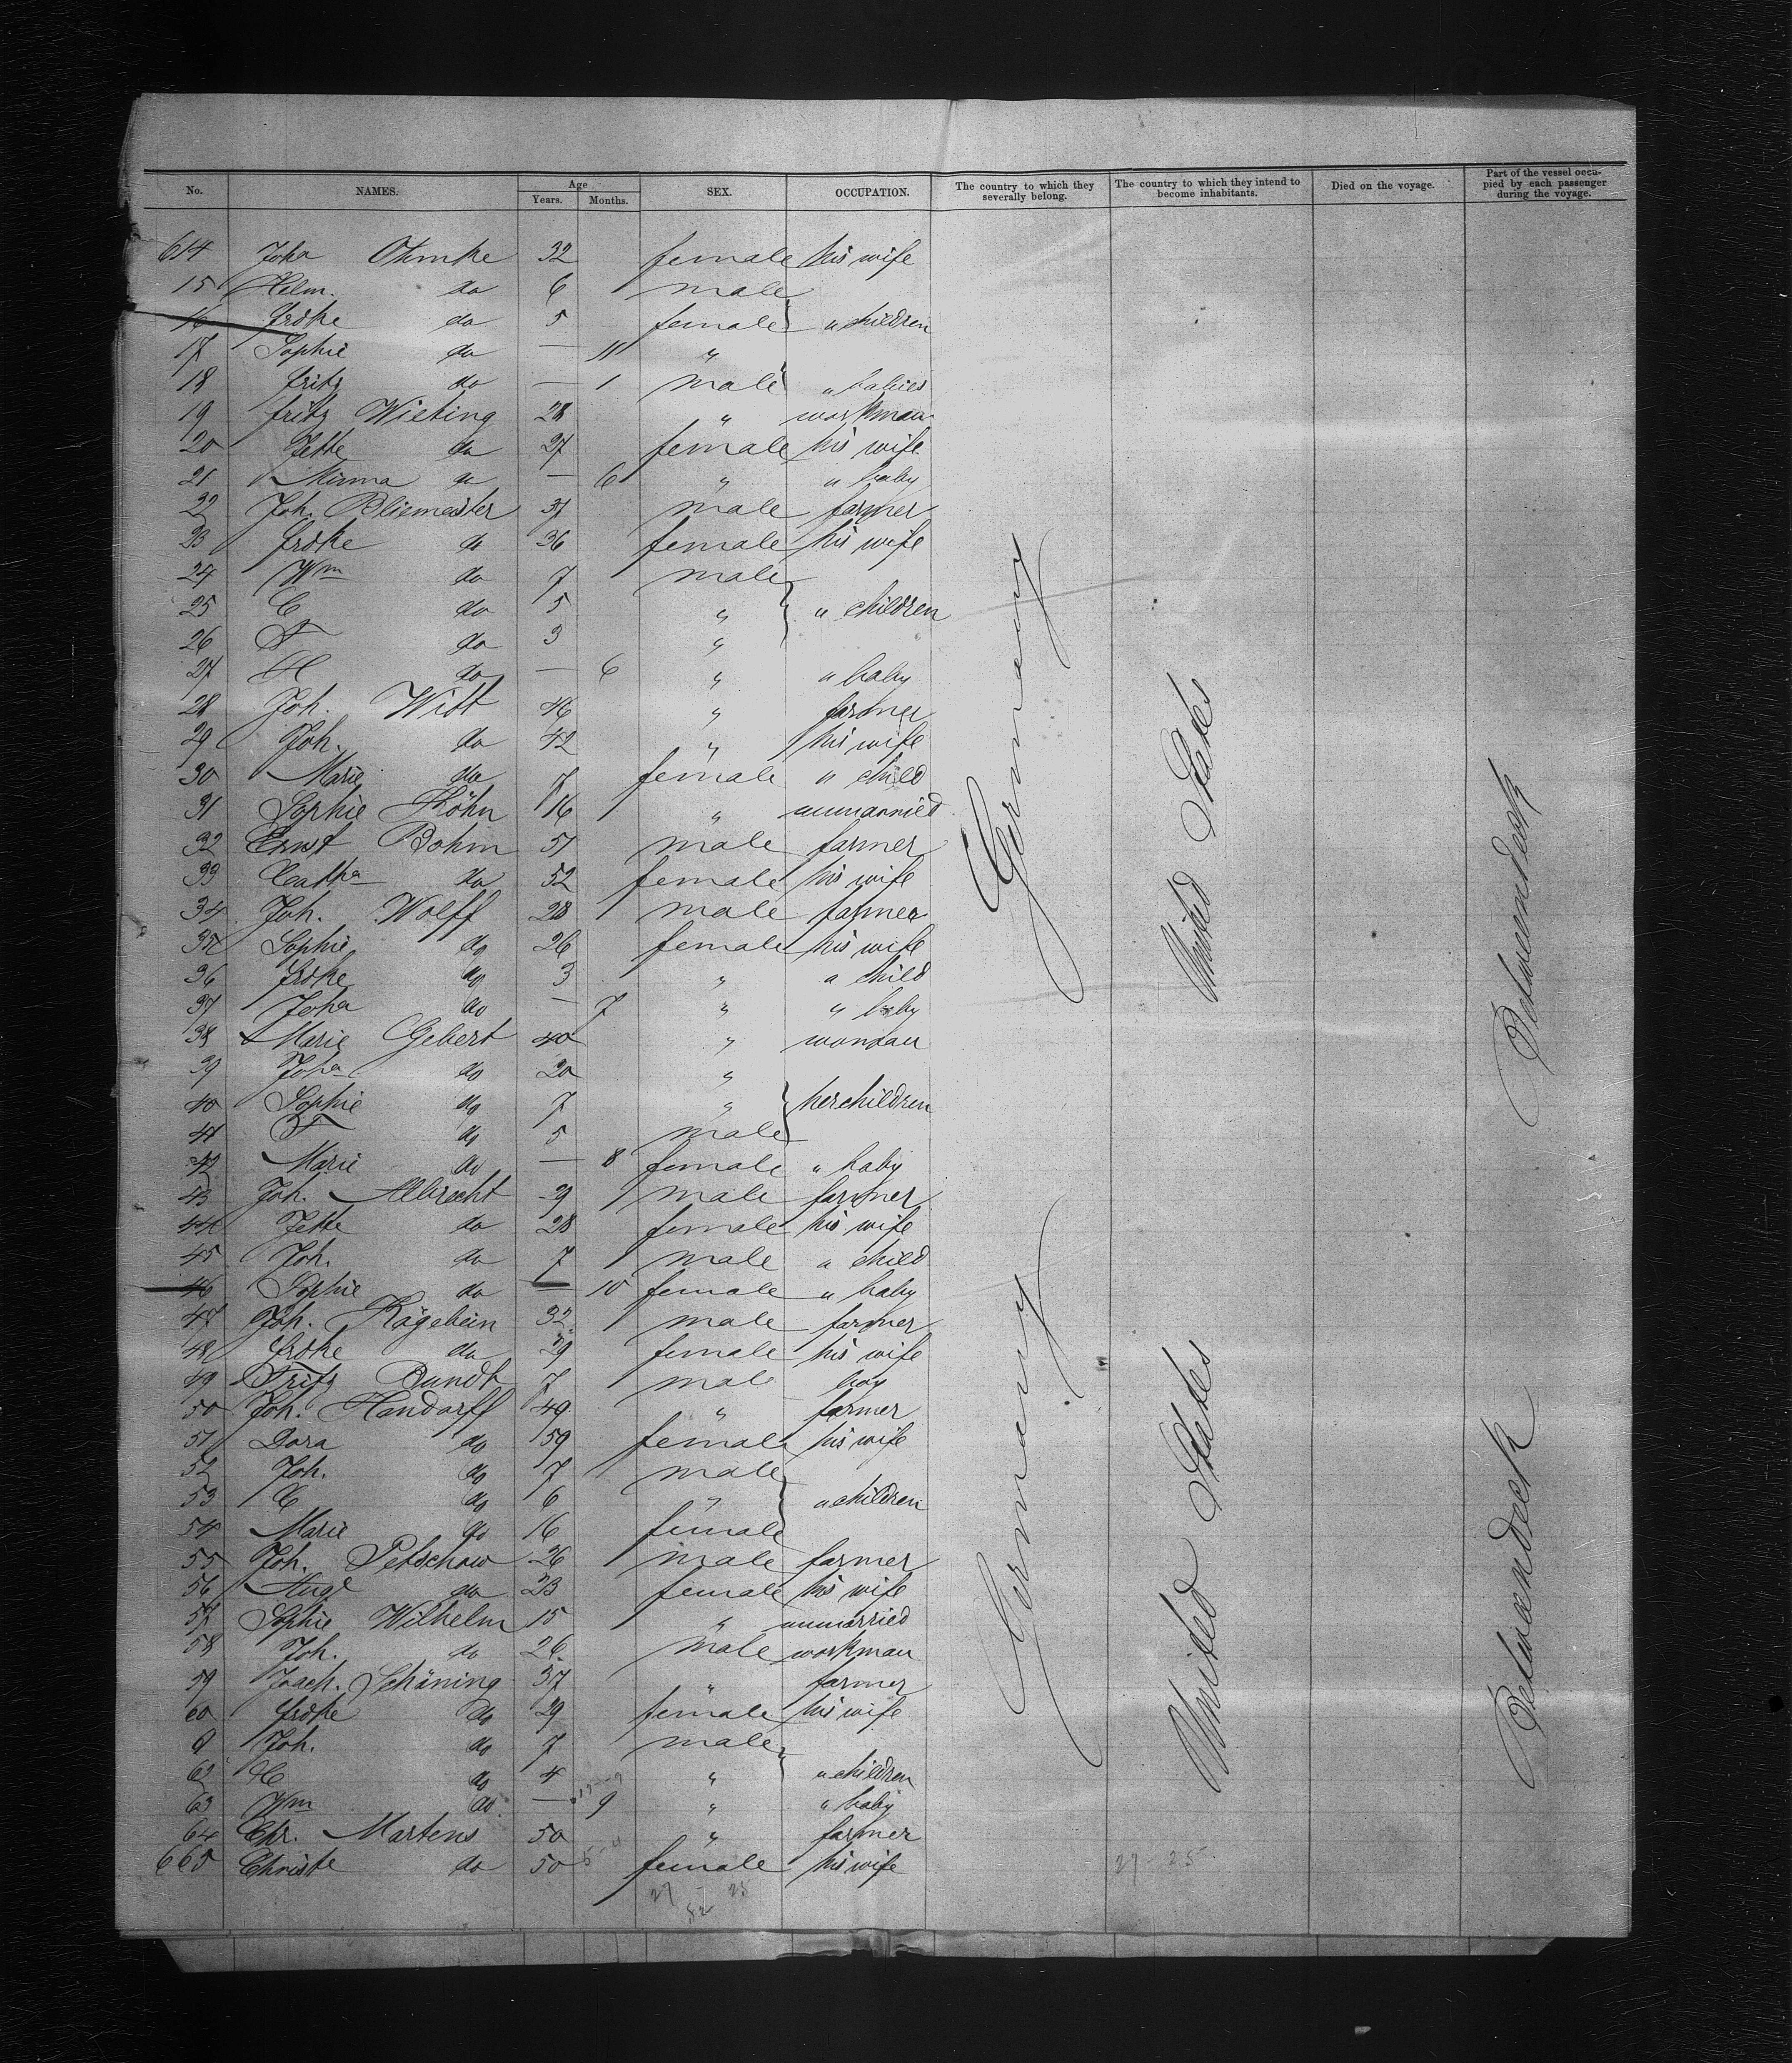 No. NAMES. Age Years. Months. SEX. OCCUPATION. The country to which they severally belong. The country to which they intend to become inhabitants. Died on the voyage. Part of the vessel occupied by each passenger during the voyage.
614 Joha Ohmke 32 female his wife
15 Helm. do 6 male
16 frdke do 5 female " children
17 Sophie do — 11 "
18 fritz do — 1 male " babies
19 fritz Wieting 28 " workman
20 Jette do 27 female his wife
21 Minna do — 6 " " baby
22 Joh. Bliemeister 37 male farmer
23 frdke do 36 female his wife
24 Wm do 7 male
25 C do 5 " " children
26 F do 3 "
27 H do — 6 " " baby
28 Joh. Witt 46 " farmer
29 Joh. do 42 " his wife
30 Marie do 7 female " child
31 Sophie Köhn 16 " unmarried
32 Ernst Bohm 51 male farmer
33 Catha do 52 female his wife
34 Joh. Wolff 28 male farmer
35 Sophie do 26 female his wife
36 frdke do 3 " " child
37 Joha do — 7 " " baby
38 Marie Gebert 40 " woman
39 Joha do 20 "
40 Sophie do 7 " her children
41 F do 5 male
42 Marie do — 8 female " baby
43 Joh. Albrecht 29 male farmer
44 Jette do 28 female his wife
45 Joh. do 7 male " child
46 Sophie do — 10 female " baby
47 Joh. Kägebein 32 male farmer
48 frdke do 29 female his wife
49 Fritz Bundt 7 male boy
50 Joh. Handorff 49 " farmer
51 Dora do 59 female his wife
52 Joh. do 7 male
53 C do 6 " " children
54 Marie do 16 female
55 Joh. Petschow 26 male farmer
56 Auge do 23 female his wife
57 Sophie Wilhelm 15 " unmarried
58 Joh. do 26 male workman
59 Joach. Schöning 37 " farmer
60 frdke do 29 female his wife
61 Joh. do 7 male
62 C do 4 " " children
63 Wm do — 9 " " baby
64 Chr. Martens 50 " farmer
665 Christe do 50 female his wife
27 - 25
52
27 - 25
Germany
United States
Betweendeck
Germany
United States
Betweendeck